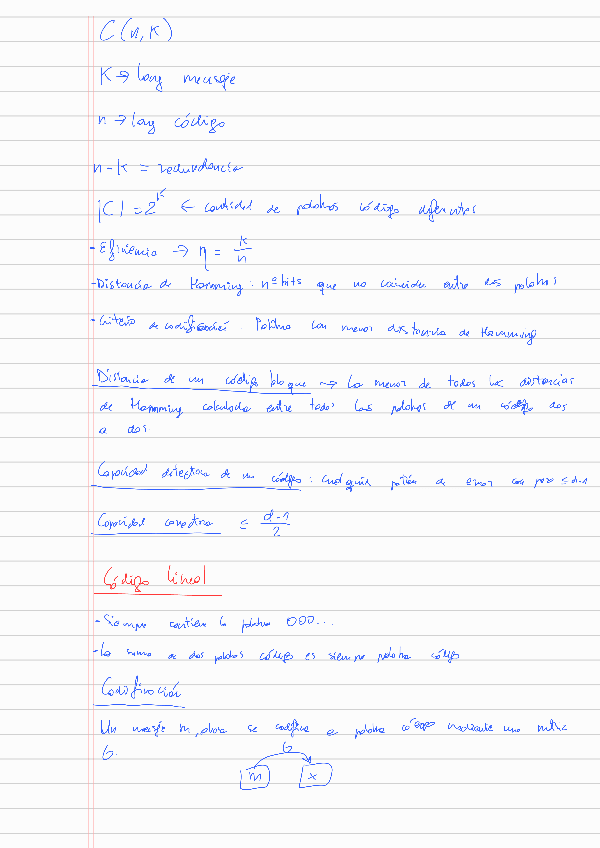 C(n,K)
K → long mensaje
n → long código
n-k = redundancia
|C| = 2^K ← cantidad de palabras código diferentes
- Eficiencia → η = k/n
- Distancia de Hamming: nº bits que no coinciden entre dos palabras
- Criterio de codificación: Palabra con menor distancia de Hamming
Distancia de un código bloque → La menor de todas las distancias
de Hamming calculada entre todas las palabras de un código dos
a dos
Capacidad detectora de un código: cualquier patrón de error con peso ≤ d-1
Capacidad correctora ≤ d-1/2
Código lineal
- Siempre contiene la palabra 000...
- La suma de dos palabras código es siempre palabra código
Codificación
Un mensaje m, ahora se codifica a palabra código mediante una matriz
G.
G
m x